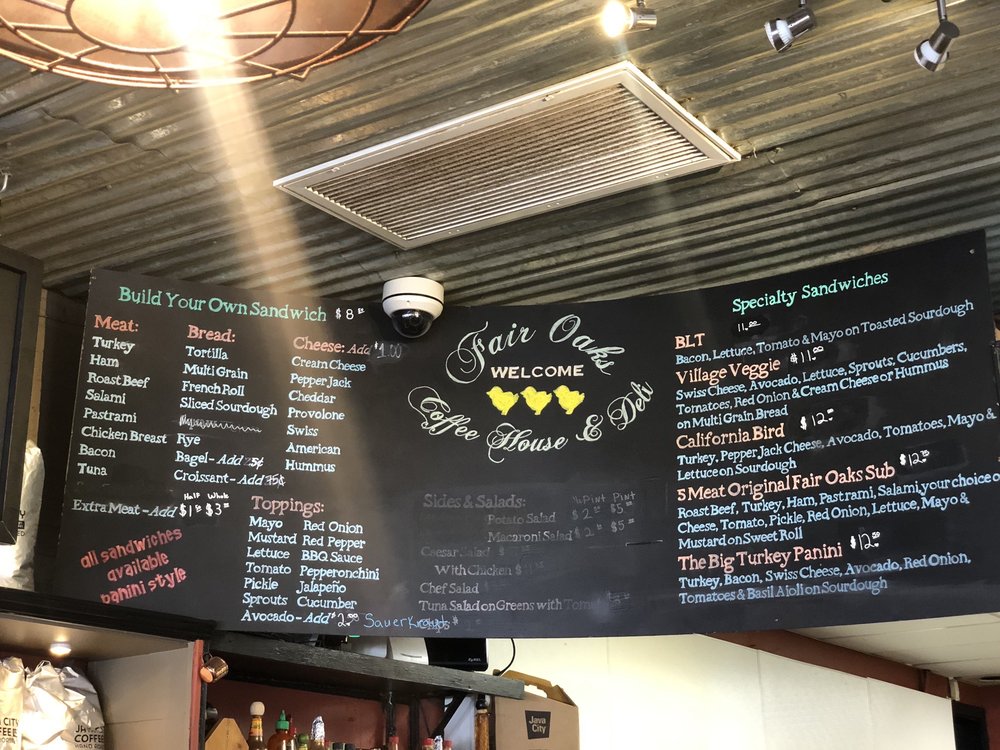 Build Your Own Sandwich $8
Meat:
Turkey
Ham
Roast Beef
Salami
Pastrami
Chicken Breast
Bacon
Tuna
Extra Meat - Add Half $1 Whole $3
all sandwiches
available
panini style
Bread:
Tortilla
Multi Grain
French Roll
Sliced Sourdough
Rye
Bagel - Add 25¢
Croissant - Add 75¢
Cheese: Add $1.00
Cream Cheese
Pepper Jack
Cheddar
Provolone
Swiss
American
Hummus
Toppings:
Mayo Red Onion
Mustard Red Pepper
Lettuce BBQ Sauce
Tomato Pepperonchini
Pickle Jalapeño
Sprouts Cucumber
Avocado - Add $2.00 Sauerkraut
Fair Oaks
WELCOME
Coffee House & Deli
Sides & Salads: ½ Pint Pint
Potato Salad $2 $5
Macaroni Salad $2 $5
Caesar Salad
With Chicken
Chef Salad
Tuna Salad on Greens with
Specialty Sandwiches
BLT 11.00
Bacon, Lettuce, Tomato & Mayo on Toasted Sourdough
Village Veggie $11.00
Swiss Cheese, Avocado, Lettuce, Sprouts, Cucumbers,
Tomatoes, Red Onion & Cream Cheese or Hummus
on Multi Grain Bread
California Bird $12
Turkey, Pepper Jack Cheese, Avocado, Tomatoes, Mayo &
Lettuce on Sourdough
5 Meat Original Fair Oaks Sub $12
Roast Beef, Turkey, Ham, Pastrami, Salami, your choice of
Cheese, Tomato, Pickle, Red Onion, Lettuce, Mayo &
Mustard on Sweet Roll
The Big Turkey Panini $12
Turkey, Bacon, Swiss Cheese, Avocado, Red Onion,
Tomatoes & Basil Aioli on Sourdough
Java
City